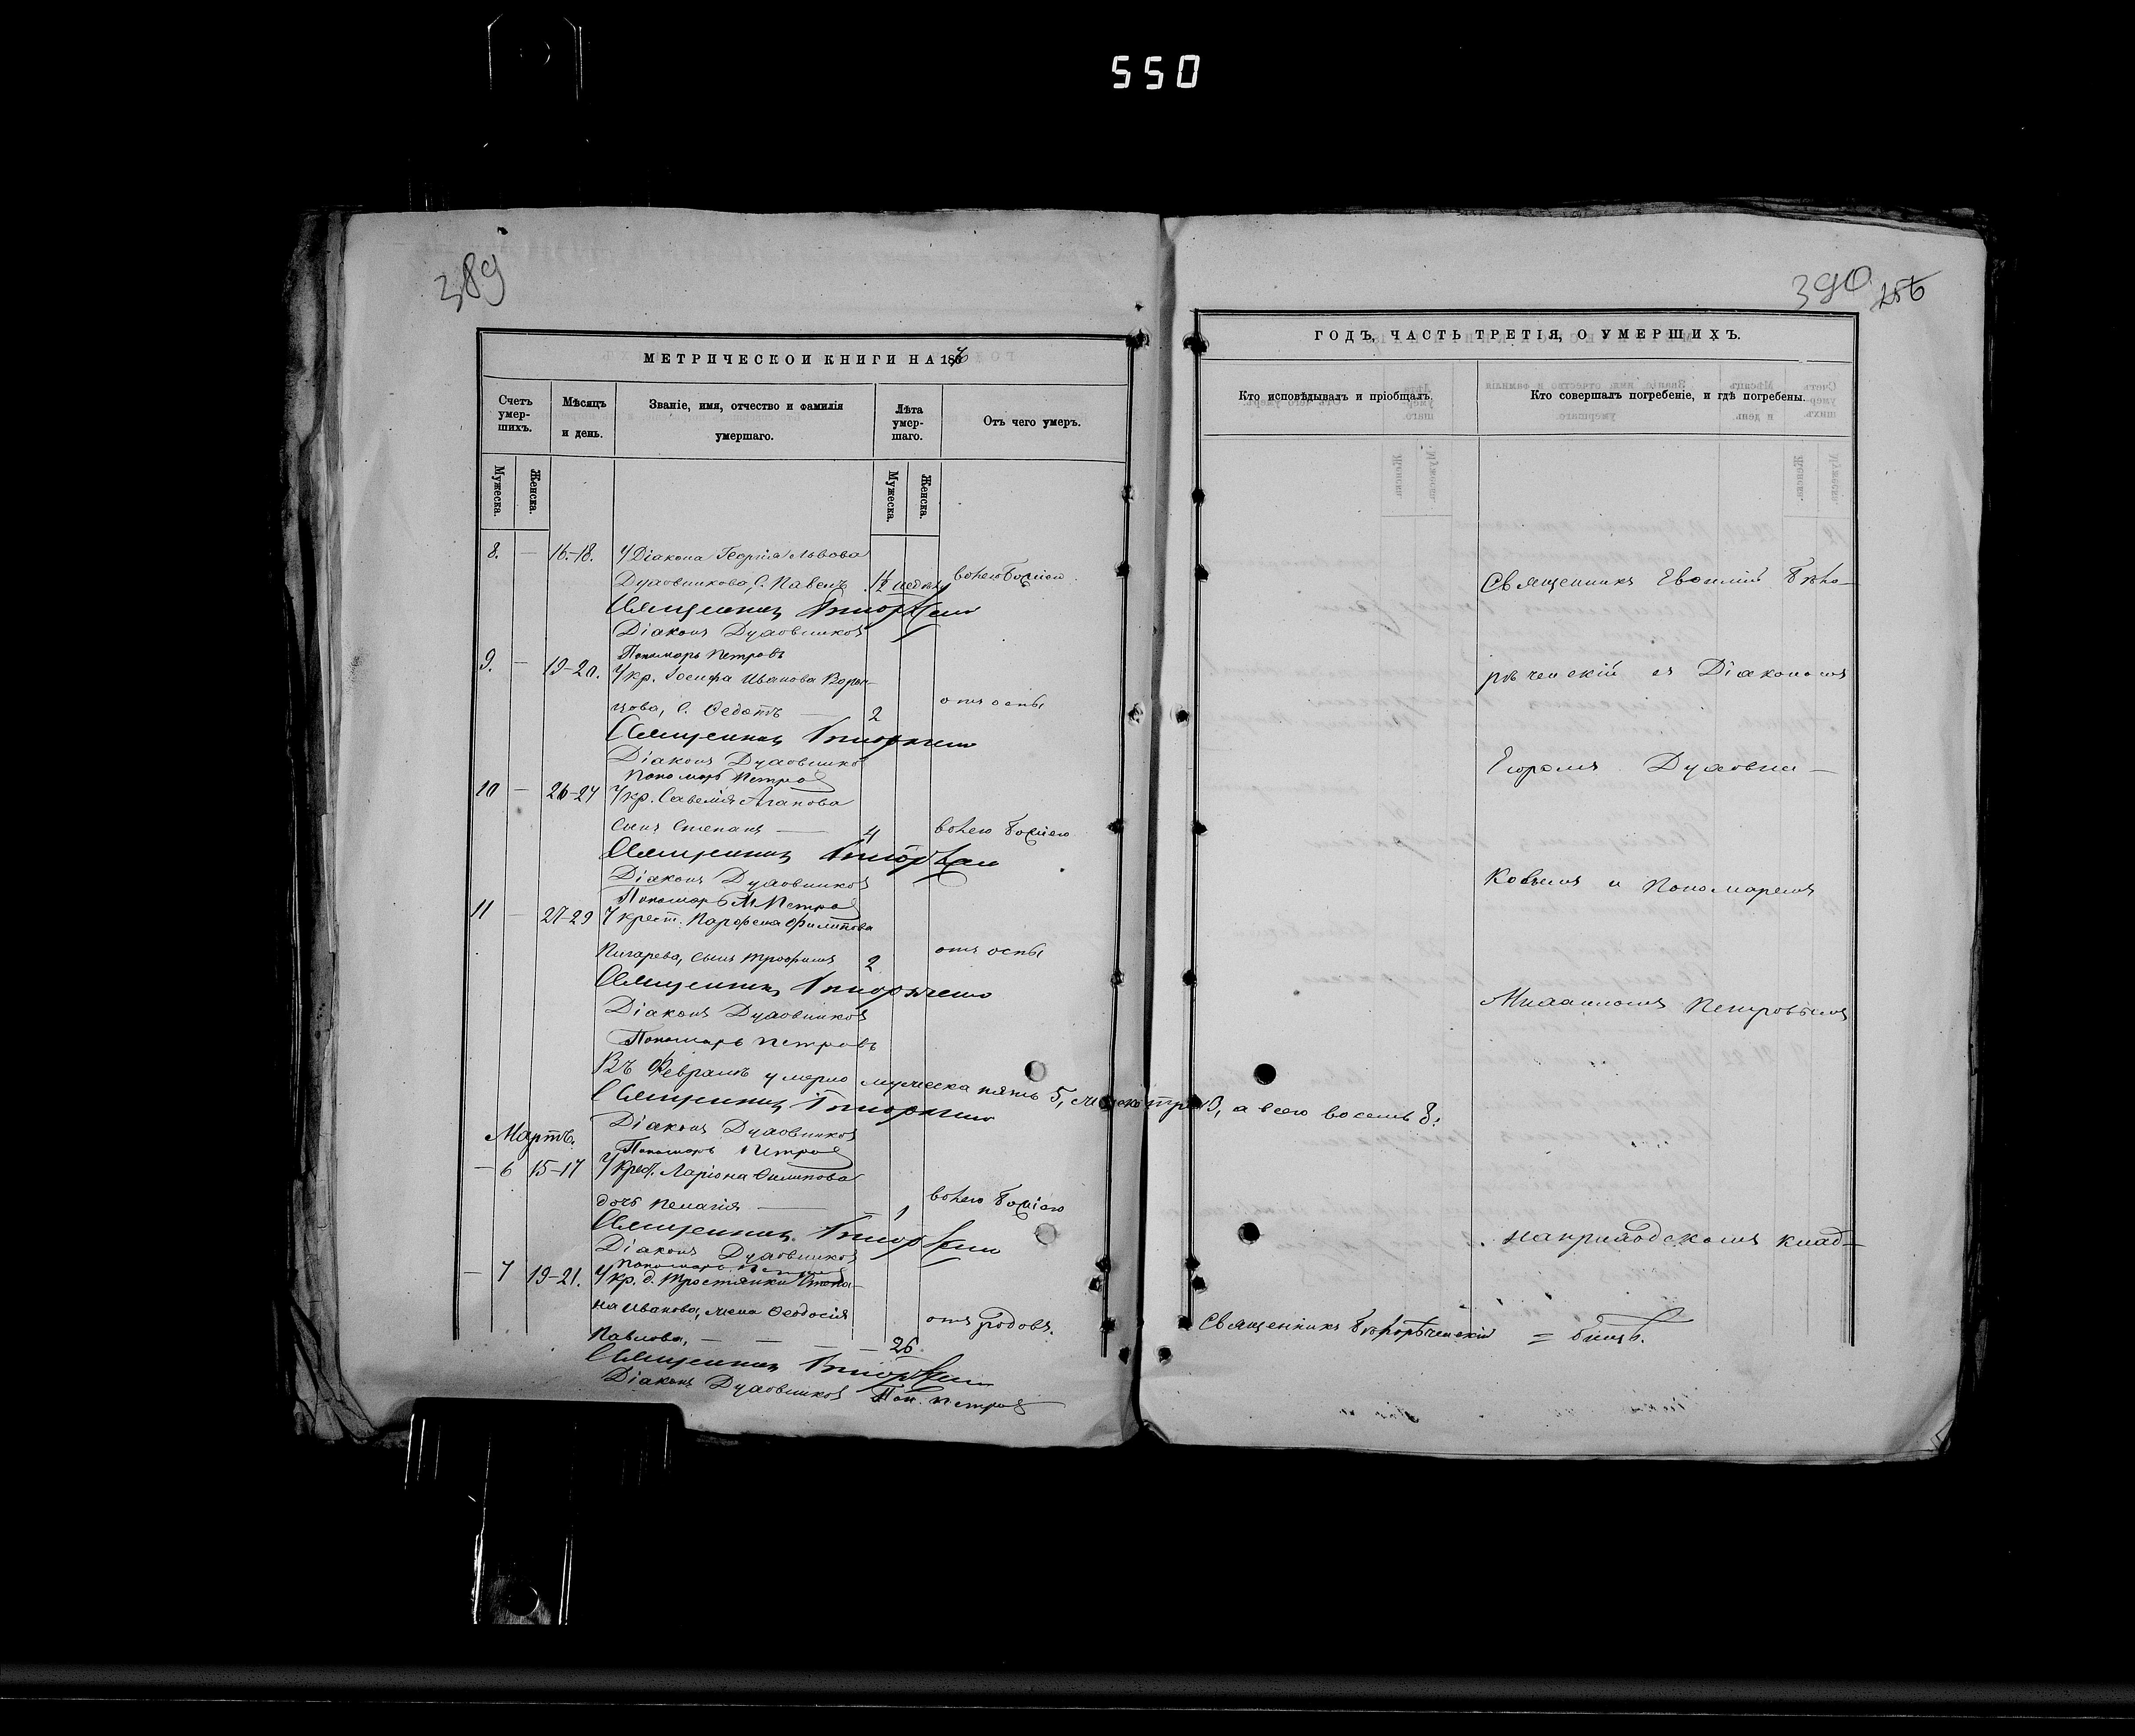 550
389
МЕТРИЧЕСКОЙ КНИГИ НА 186
Счетъ умер-шихъ.
Мѣсяцъ и день.
Званіе, имя, отчество и фамилія умершаго.
Лѣта умер-шаго.
Отъ чего умеръ.
Мужеска.
Женска.
Мужеска.
Женска.
8. — 16.-18. У Діакона Георгія Львова
Духовникова, С. Павелъ волею Божіею
Священникъ
Діаконъ Духовниковъ
Пономарь Петровъ
9. — 19-20. У кр. Іосифа Иванова Ворон-
цова, С. Ѳедотъ — 2 отъ оспы
Священникъ
Діаконъ Духовниковъ
Пономарь Петровъ
10 — 26-27 У кр. Савелія Агапова
сынъ Степанъ — 4 волею Божіею
Священникъ
Діаконъ Духовниковъ
Пономарь М. Петровъ
11 — 27-29 У крест. Парфена Филипова
Пигарева, сынъ Трофимъ 2 отъ оспы
Священникъ
Діаконъ Духовниковъ
Пономарь Петровъ
Въ Февралѣ умерло мужеска пять 5, женска три 3, а всего восемь 8.
Священникъ
Діаконъ Духовниковъ
Мартъ.
Пономарь Петровъ
— 6 15-17 У крест. Ларіона Филипова
дочь Пелагія — 1 волею Божіею
Священникъ
Діаконъ Духовниковъ
Пономарь Петровъ
— 7 19-21. У кр. д. Тростянки Степа-
на Иванова, жена Ѳеодосія отъ родовъ.
Павлова, — — — 26
Священникъ
Діаконъ Духовниковъ Пон. Петровъ
390
ГОДЪ, ЧАСТЬ ТРЕТІЯ, О УМЕРШИХЪ.
Кто исповѣдывалъ и пріобщалъ.
Кто совершалъ погребеніе, и гдѣ погребены.
Священникъ Евѳимій Бѣло-
рѣченскій съ Діакономъ
Егоромъ Духовни-
ковымъ и Пономаремъ
Михаиломъ Петровымъ
на приходскомъ клад-
Священникъ Бѣлорѣченскій = бищѣ.